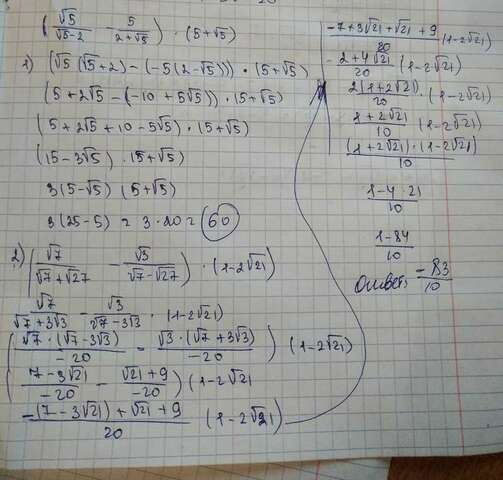 (√5/(√5-2) - 5/(2+√5)) · (5+√5)
1) (√5(√5+2) - (-5(2-√5))) · (5+√5)
(5+2√5 - (-10+5√5)) · (5+√5)
(5+2√5+10-5√5) · (5+√5)
(15-3√5) · (5+√5)
3(5-√5) (5+√5)
3(25-5) = 3·20 = 60
2) (√7/(√7+√27) - √3/(√7-√27)) · (1-2√21)
√7/(√7+3√3) - √3/(√7-3√3) · (1-2√21)
(√7·(√7-3√3)/-20 - √3·(√7+3√3)/-20) (1-2√21)
(7-3√21/-20 - √21+9/-20) (1-2√21
-(7-3√21)+√21+9/20 (1-2√21)
-7+3√21+√21+9/20 (1-2√21)
2+4√21/20 (1-2√21)
2(1+2√21)/20 · (1-2√21)
1+2√21/10 (1-2√21)
(1+2√21)·(1-2√21)/10
1-4·21/10
1-84/10
Ответ: -83/10